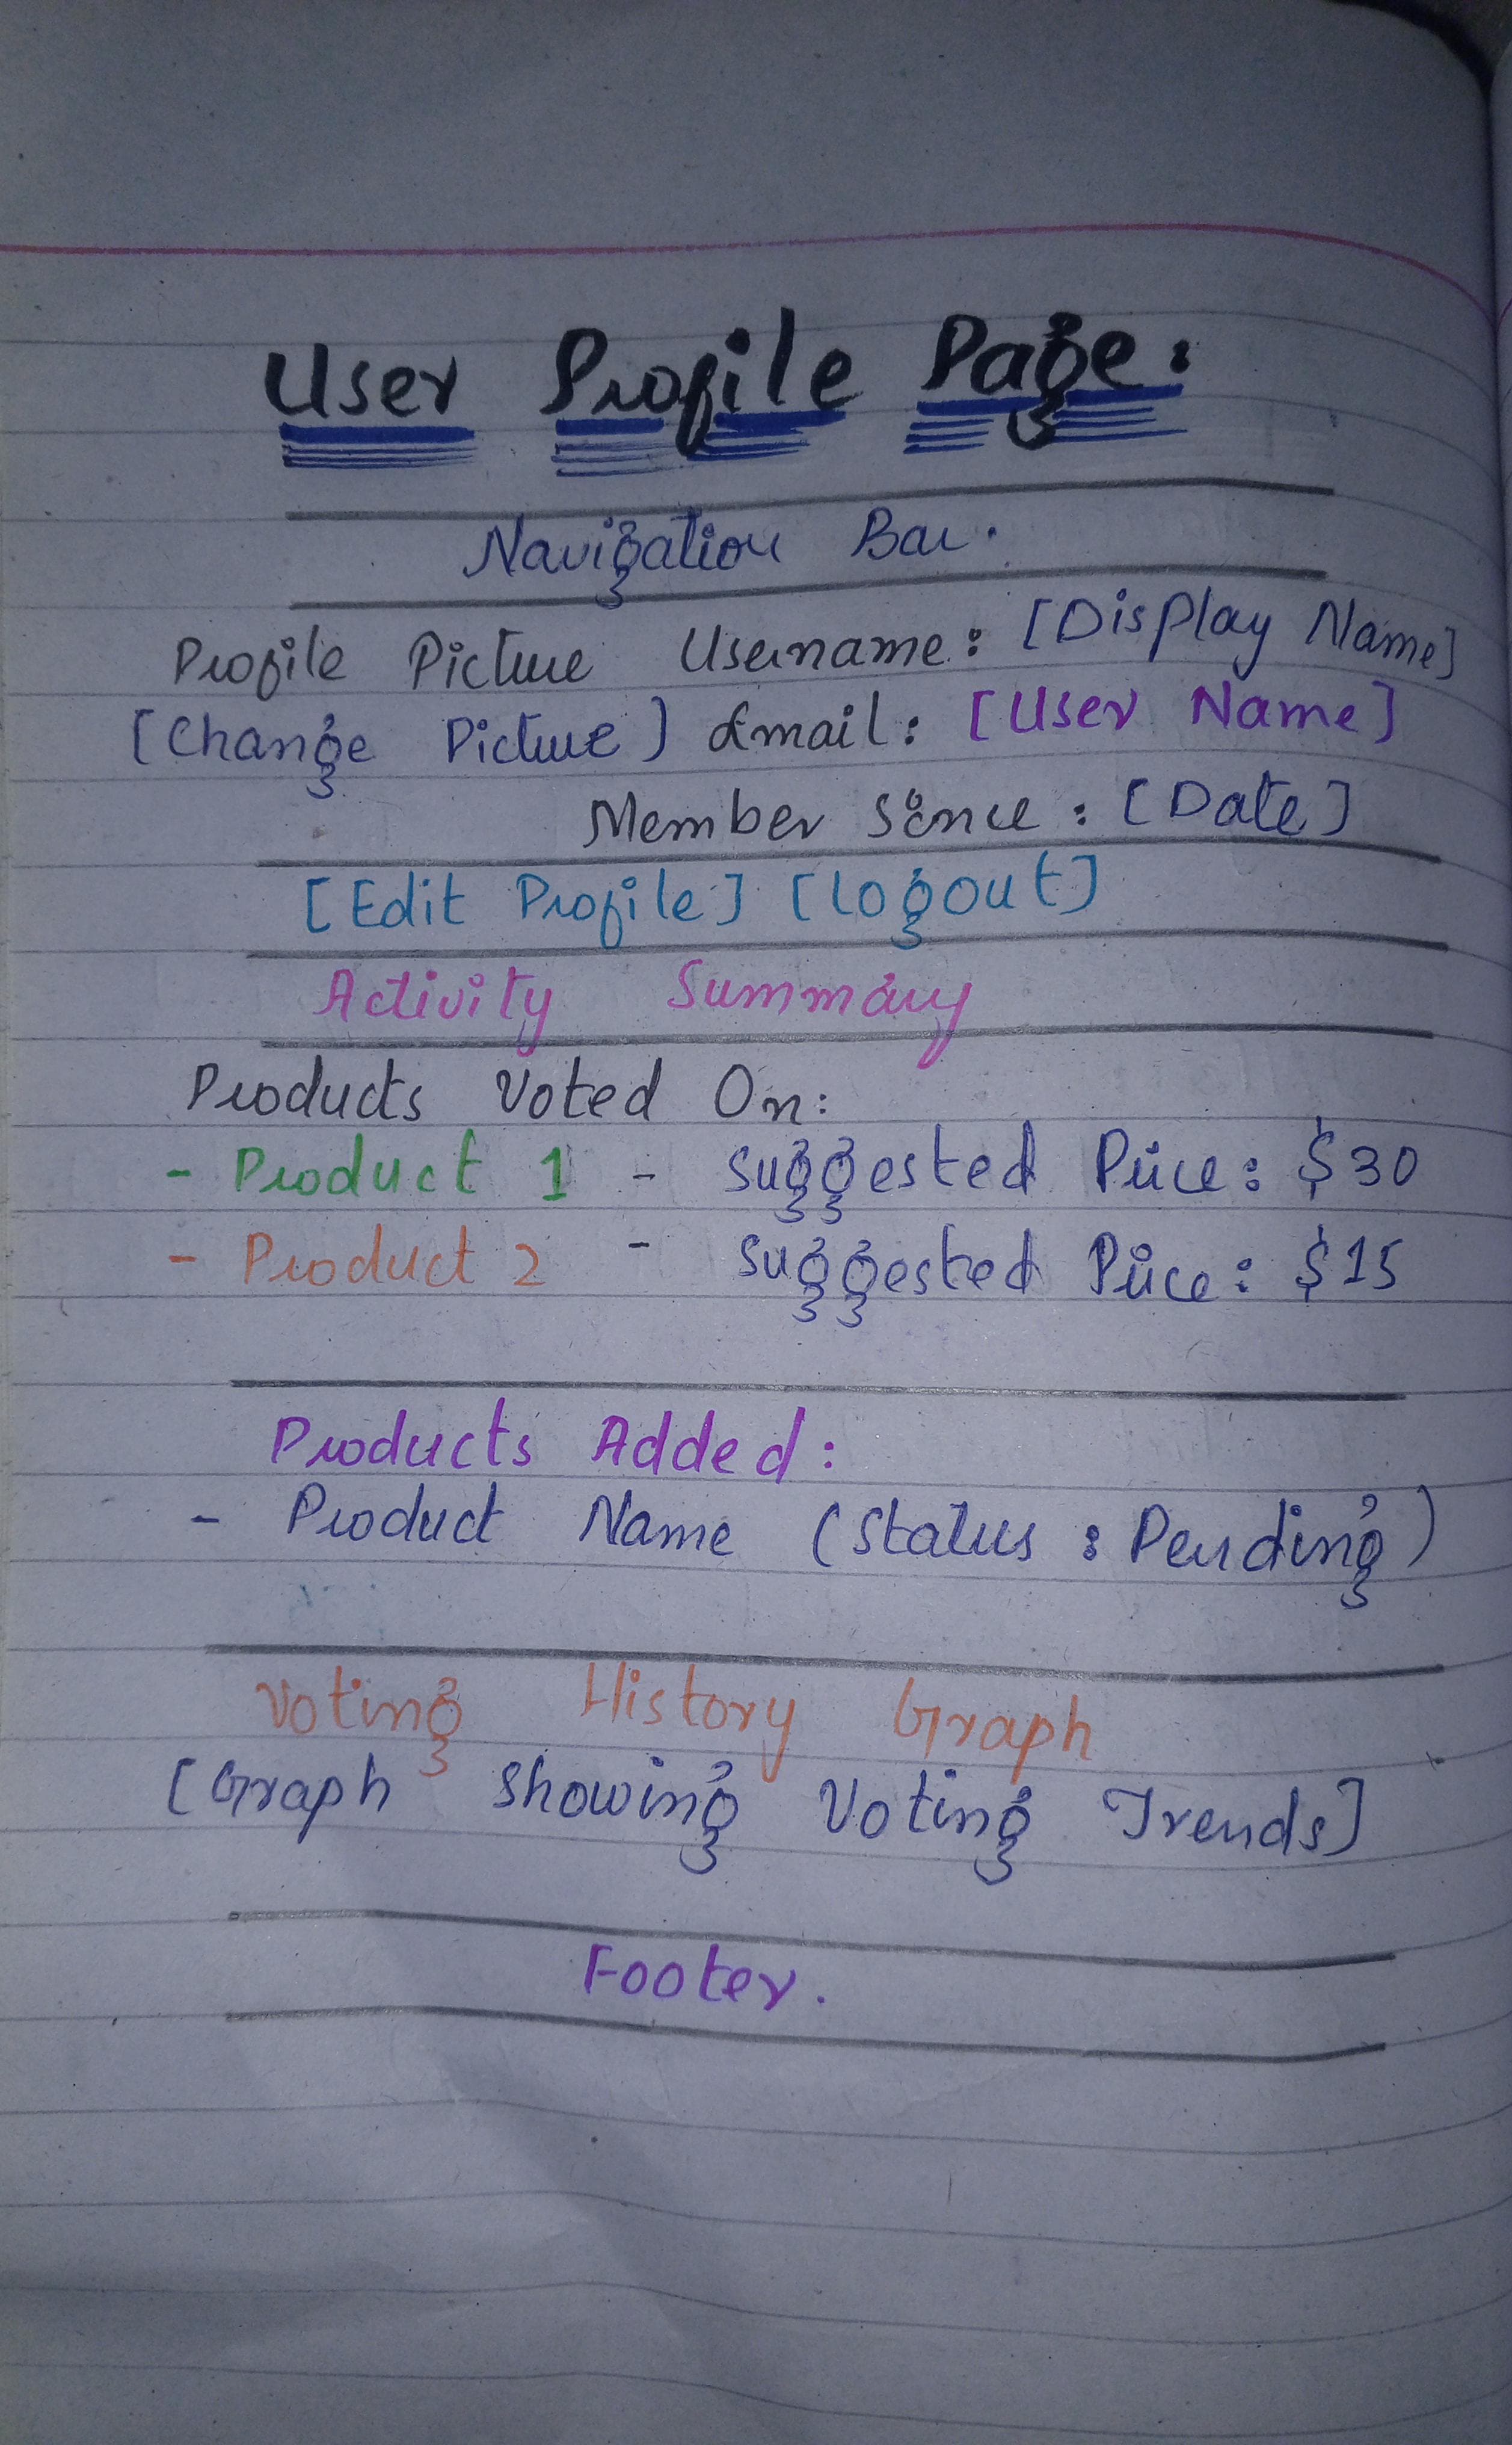 User Profile Page:
Navigation Bar.
Profile Picture Username: [Display Name]
[Change Picture] Email: [User Name]
Member Since: [Date]
[Edit Profile] [Logout]
Activity Summary
Products Voted On:
- Product 1 - Suggested Price: $30
- Product 2 - Suggested Price: $15
Products Added:
- Product Name (Status: Pending)
Voting History Graph
[Graph Showing Voting Trends]
Footer.